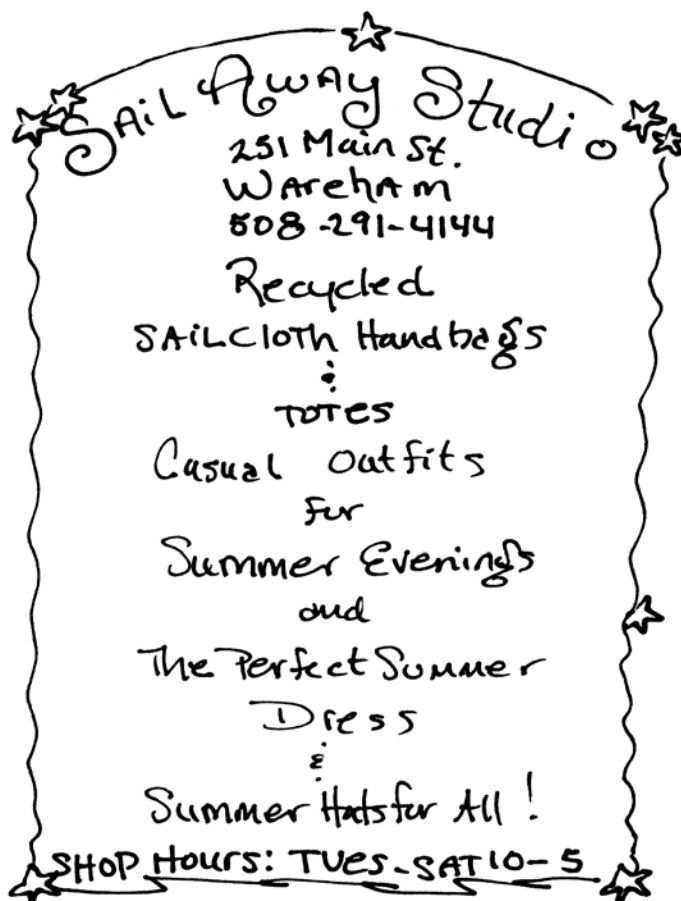 SAiL AWAY Studio
251 Main St.
WArehAm
508-291-4144
Recycled
SAiLCloTh Handbags
&
TOTES
Casual Outfits
for
Summer Evenings
and
The Perfect Summer
Dress
&
Summer Hats for All!
SHOP Hours: TUes-SAT 10-5